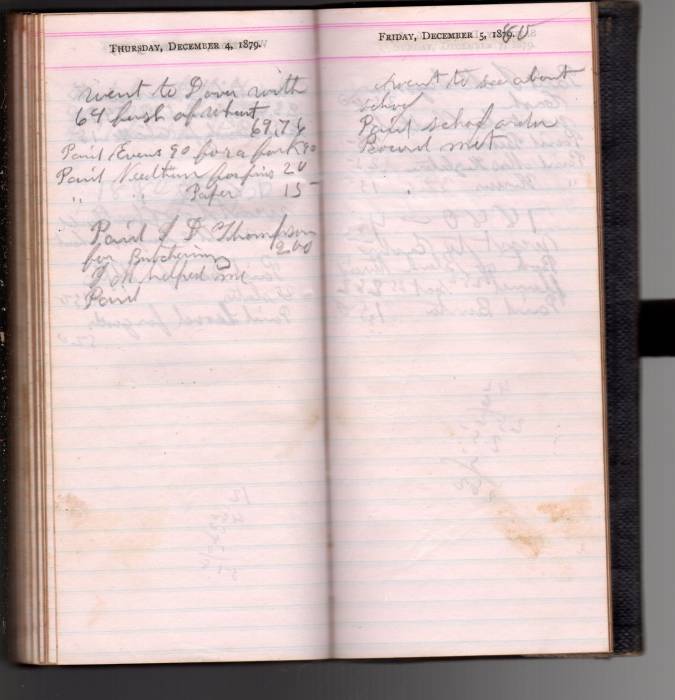 THURSDAY, DECEMBER 4, 1879.
Went to Dover with
64 bush of wheat
69,76
Paid Evens 90 for a fork 90
Paid Needham for pins 20
" " Paper 15
Paid J D Thompson
for Butchering 200
helped me
Paid
FRIDAY, DECEMBER 5, 1879. 80
Went to see about
school
Paid school order
Board met